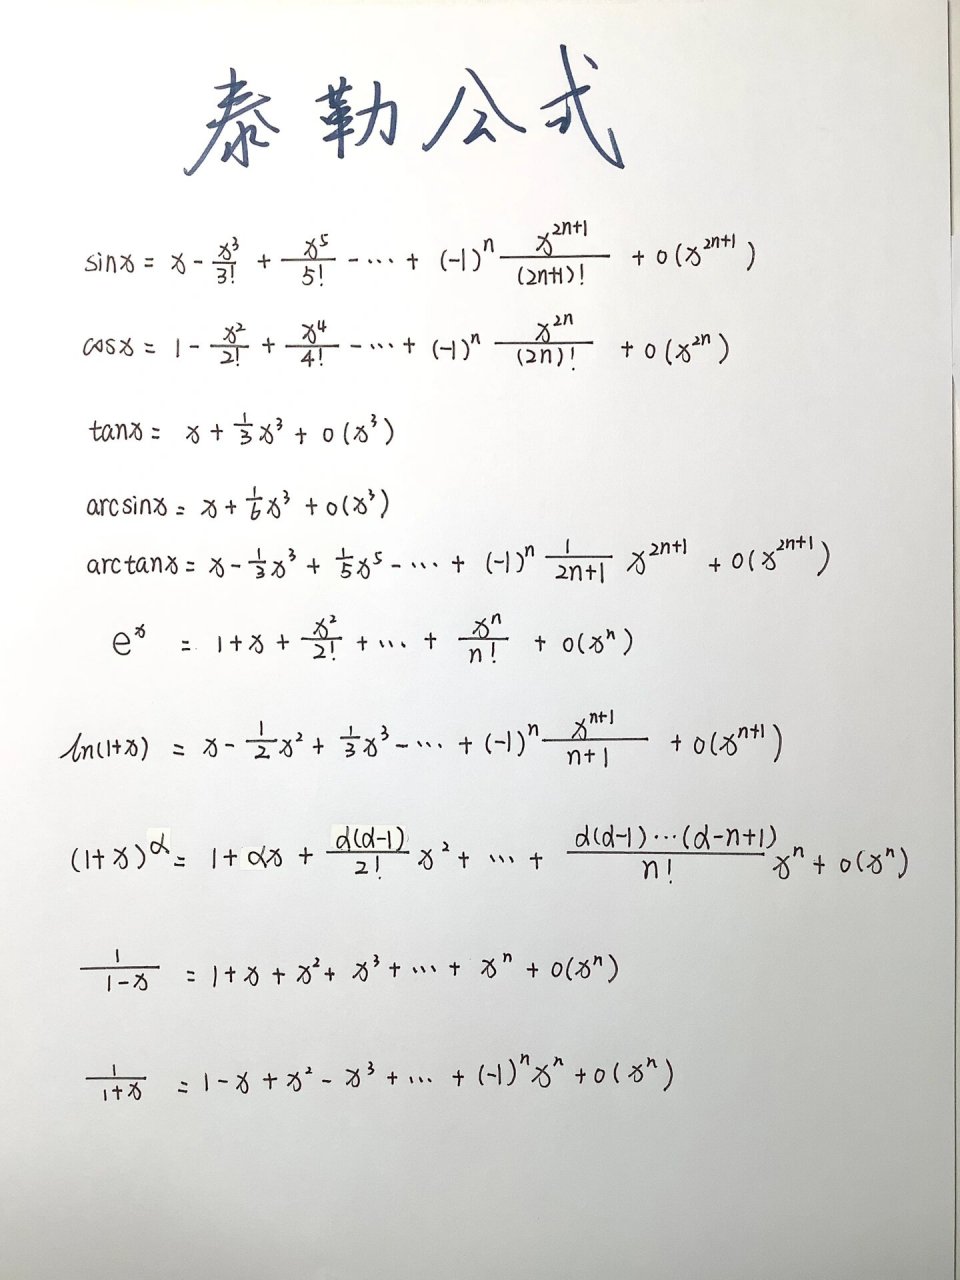 泰勒公式
sinx = x - x³/3! + x⁵/5! - ⋯ + (-1)ⁿ x²ⁿ⁺¹/(2n+1)! + o(x²ⁿ⁺¹)
cosx = 1 - x²/2! + x⁴/4! - ⋯ + (-1)ⁿ x²ⁿ/(2n)! + o(x²ⁿ)
tanx = x + 1/3 x³ + o(x³)
arcsinx = x + 1/6 x³ + o(x³)
arctanx = x - 1/3 x³ + 1/5 x⁵ - ⋯ + (-1)ⁿ 1/(2n+1) x²ⁿ⁺¹ + o(x²ⁿ⁺¹)
eˣ = 1 + x + x²/2! + ⋯ + xⁿ/n! + o(xⁿ)
ln(1+x) = x - 1/2 x² + 1/3 x³ - ⋯ + (-1)ⁿ xⁿ⁺¹/(n+1) + o(xⁿ⁺¹)
(1+x)^α = 1 + αx + α(α-1)/2! x² + ⋯ + α(α-1)⋯(α-n+1)/n! xⁿ + o(xⁿ)
1/(1-x) = 1 + x + x² + x³ + ⋯ + xⁿ + o(xⁿ)
1/(1+x) = 1 - x + x² - x³ + ⋯ + (-1)ⁿxⁿ + o(xⁿ)